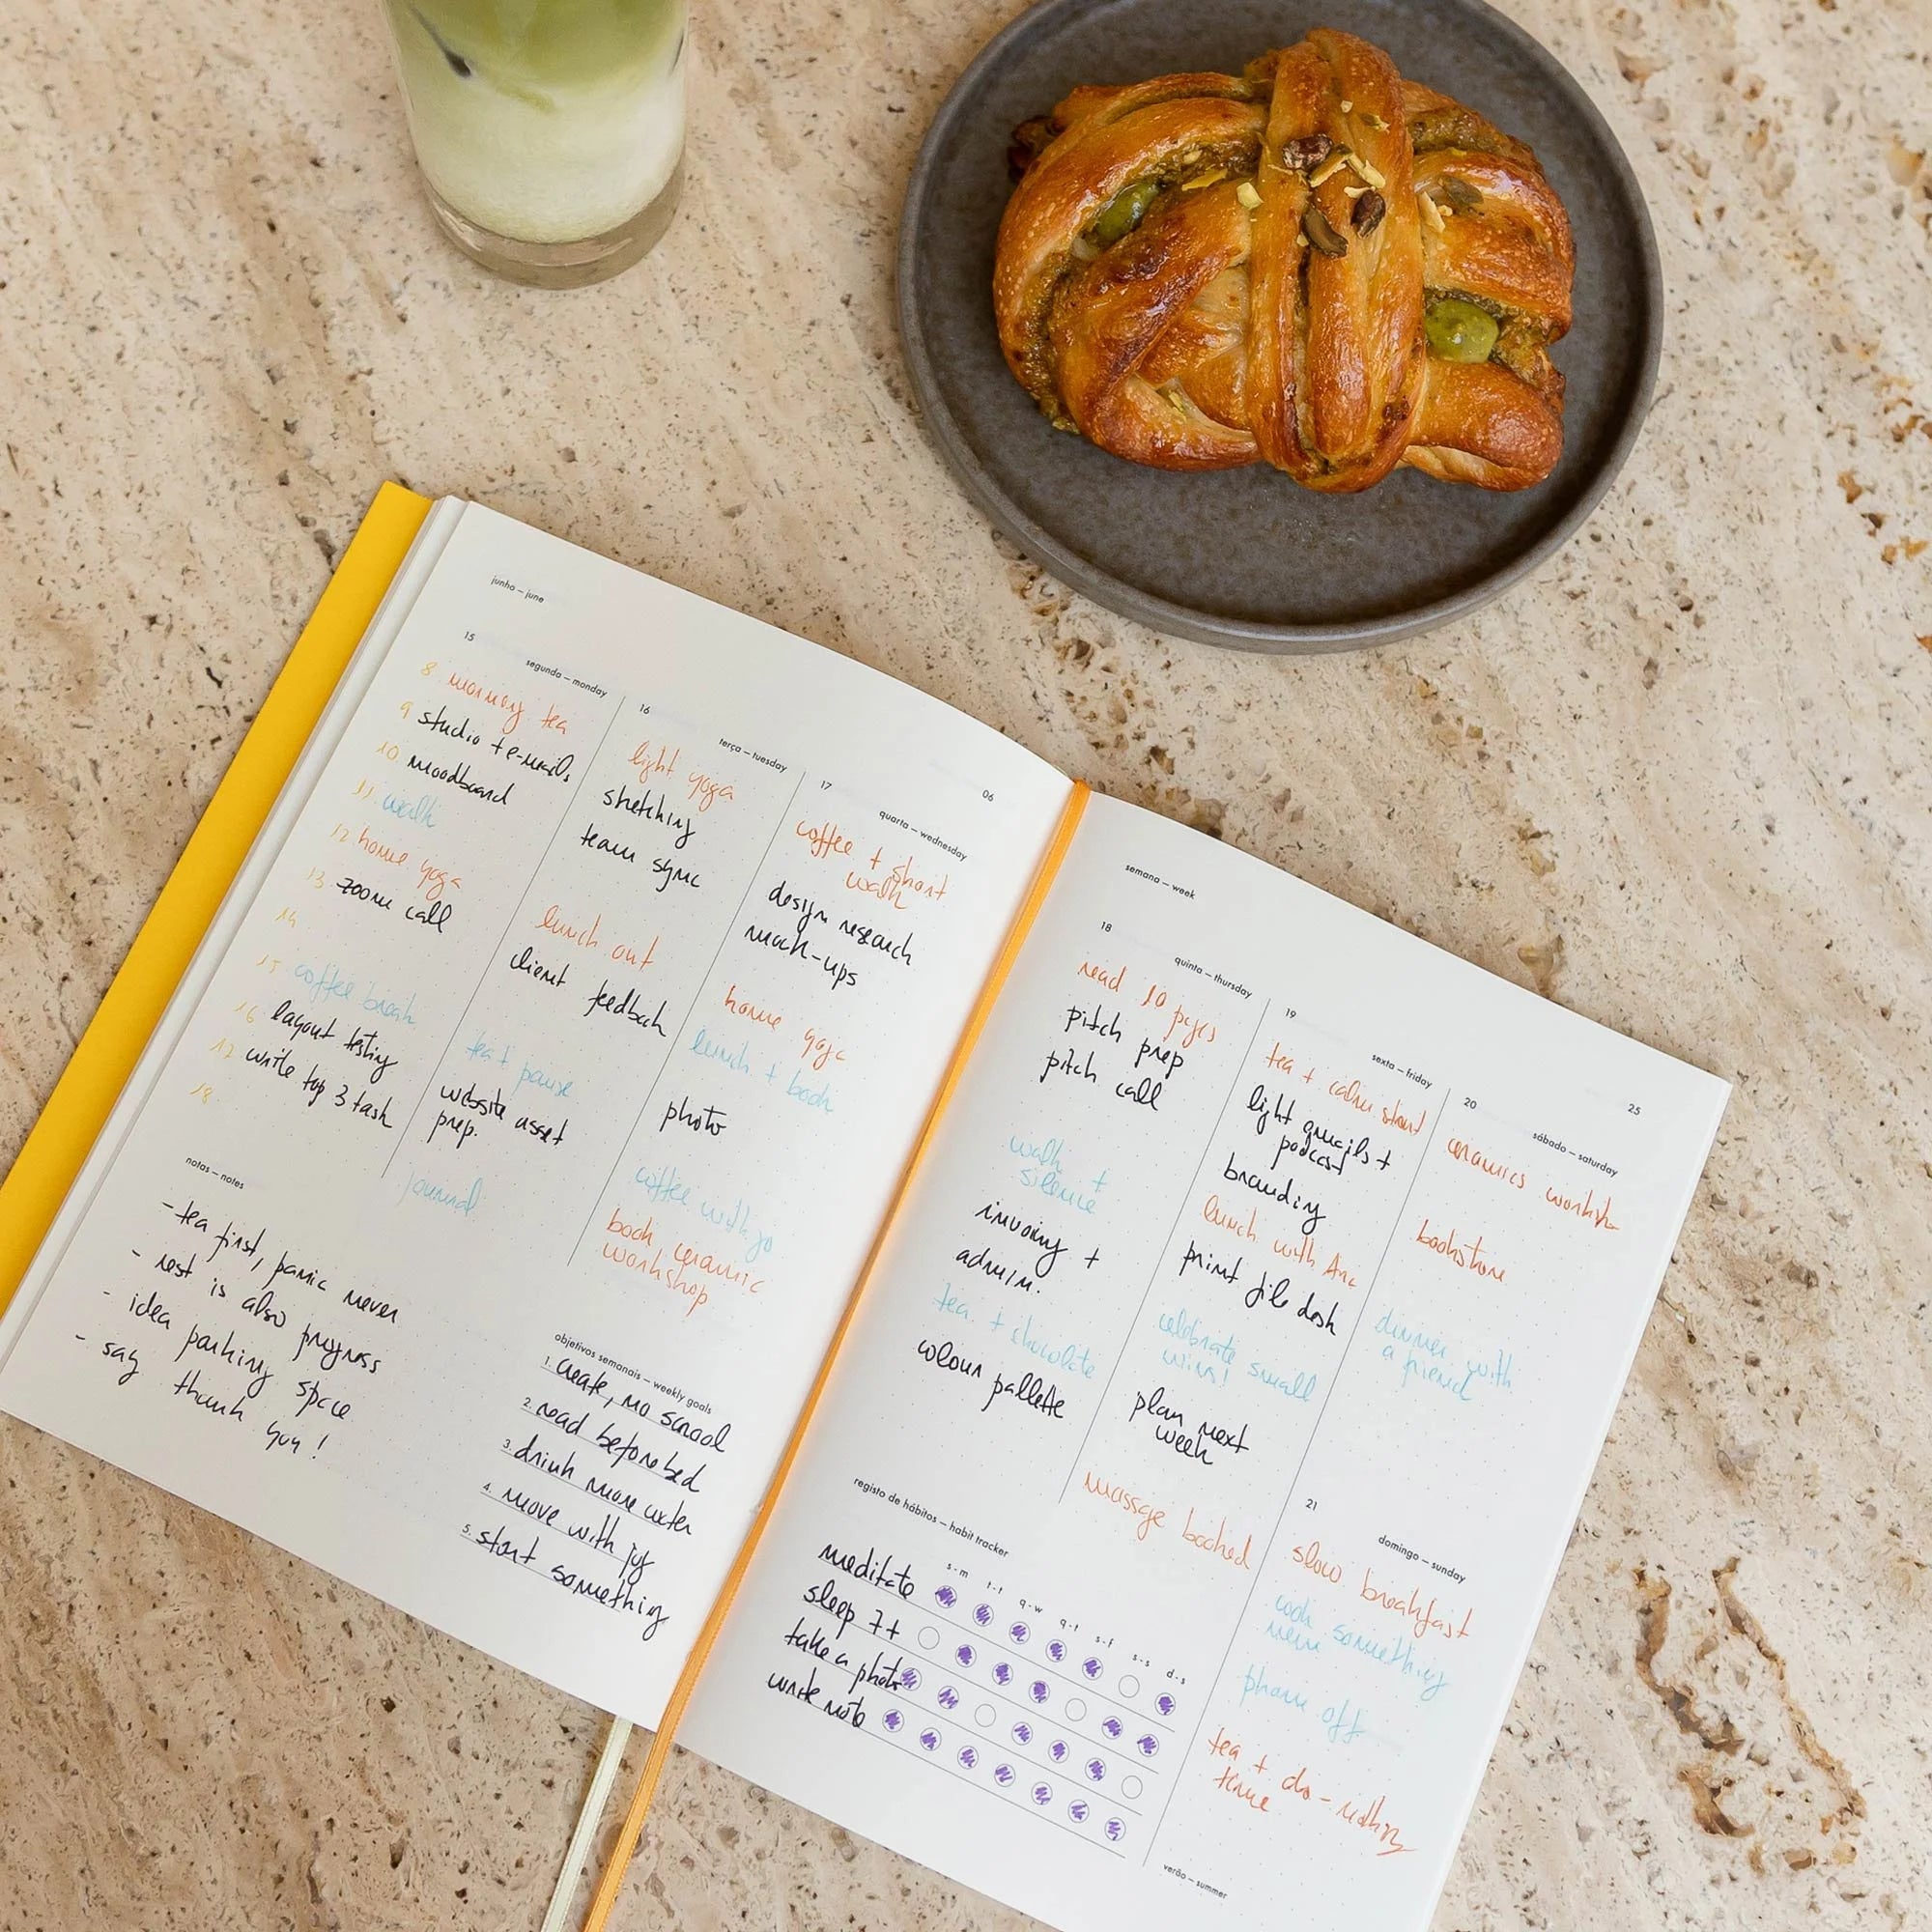 junho — june
15
segunda — monday
8 morning tea
9 studio + e-mails
10 moodboard
11 walk
12 home yoga
13 zoom call
14
15 coffee break
16 layout testing
17 write top 3 task
18
16
terça — tuesday
light yoga
sketching
team sync
lunch out
client feedback
tea + pause
website asset
prep.
journal
06
17
quarta — wednesday
coffee + short
walk
design research
mock-ups
home yoga
lunch + book
photo
coffee with jo
book ceramic
workshop
notas — notes
- tea first, panic never
- rest is also progress
- idea parking space
- say thank you!
objetivos semanais — weekly goals
1. create, no scrool
2. read before bed
3. drink more water
4. move with joy
5. start something
semana — week
25
18
quinta — thursday
read 10 pages
pitch prep
pitch call
walk +
silence
invoicing +
admin.
tea + chocolate
colour pallette
19
sexta — friday
tea + calm start
light emails +
podcast
branding
lunch with Ana
print file dash
celebrate small
wins!
plan next
week
massage booked
20
sábado — saturday
ceramics worksh
bookstore
dinner with
a friend
registo de hábitos — habit tracker
s-m t-t q-w q-t s-f s-s d-s
meditate
sleep 7+
take a photo
write note
21
domingo — sunday
slow breakfast
cook something
new
phone off
tea + do-nothing
time
verão — summer